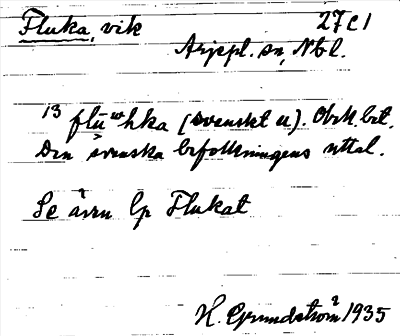 Fluka, vik 27 c 1
Arjepl. sn, Nbl.
13 flūʷhka (svenskt u). Obek. bet.
Den svenska befolkningens uttal.
Se även lp Flukat
H. Grundström 1935